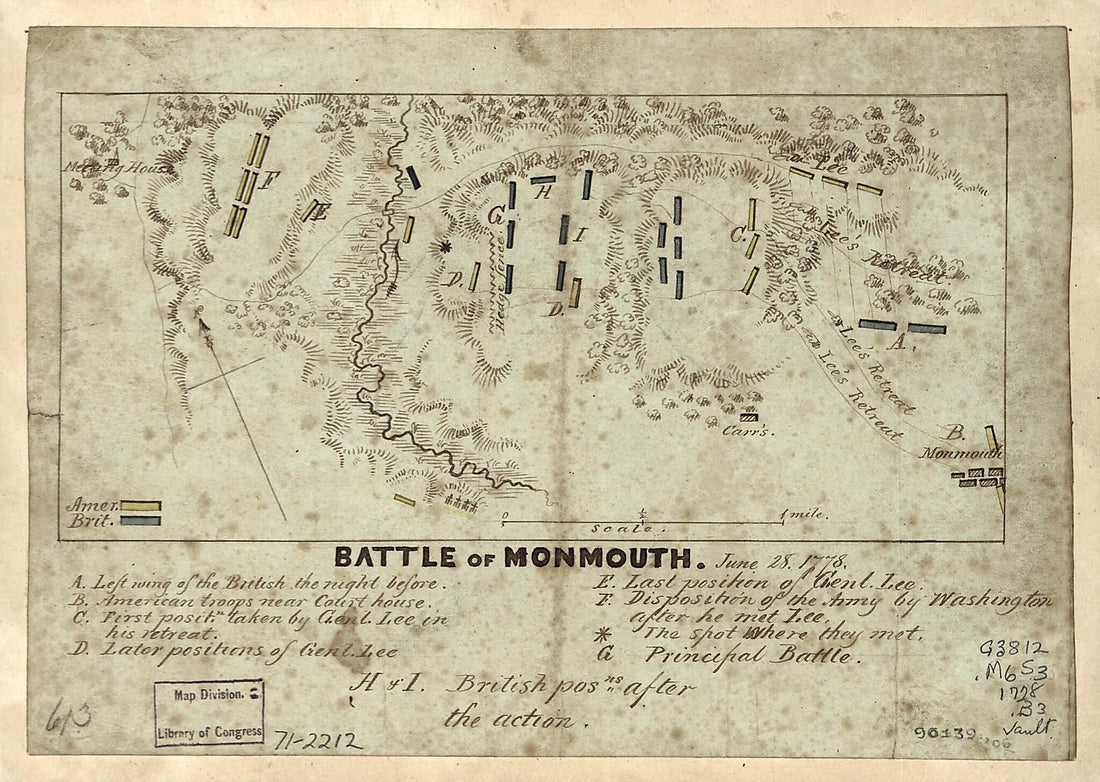 Meeting House
F
E
G
H
I
D.
Hedge fence.
D.
C.
Lee
Lee's Retreat
A.
Lee's Retreat
Lee's Retreat
Carr's.
B.
Monmouth
Amer.
Brit.
0 ½ 1 mile.
Scale.
BATTLE OF MONMOUTH. June 28. 1778.
A. Left wing of the British the night before.
B. American troops near Court house.
C. First positn. taken by Genl. Lee in
his retreat.
D. Later positions of Genl. Lee
E. Last position of Genl. Lee.
F. Disposition of the Army by Washington
after he met Lee.
* The spot where they met.
G Principal Battle.
H & I. British posns. after
the action.
Map Division.
Library of Congress
71-2212
613
G3812
.M6S3
1778
.B3
Vault
90139